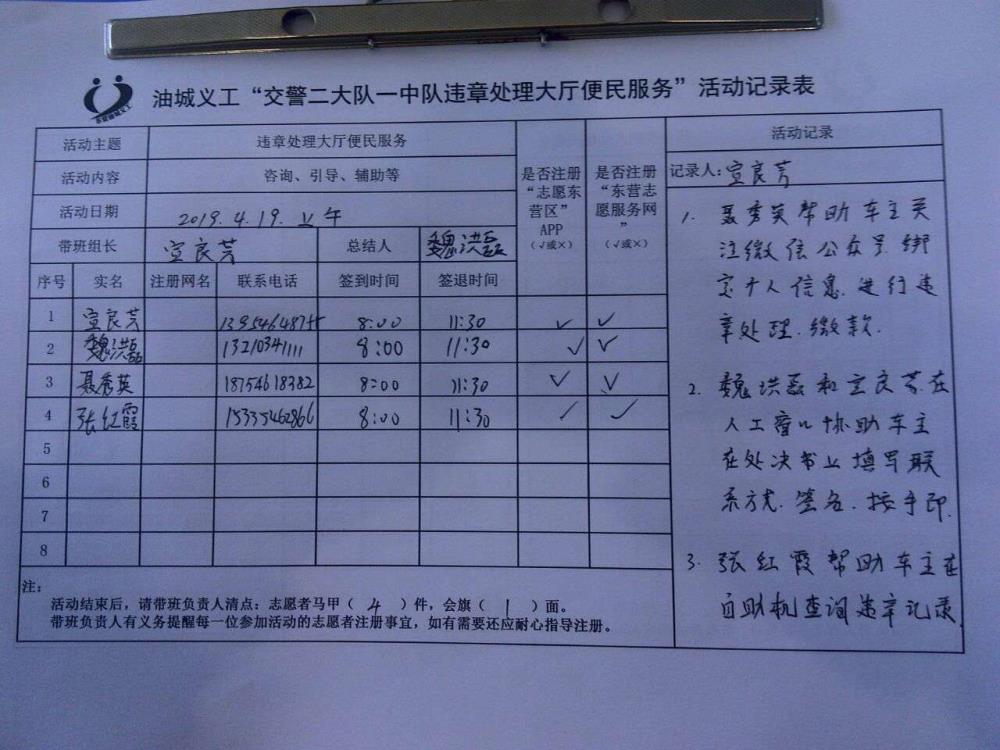 油城义工“交警二大队一中队违章处理大厅便民服务”活动记录表
东营油城义工
活动主题 违章处理大厅便民服务
活动内容 咨询、引导、辅助等
活动日期 2019.4.19.上午
带班组长 宣良芳 总结人 魏洪磊
是否注册“志愿东营区”APP（√或×）
是否注册“东营志愿服务网”（√或×）
序号 实名 注册网名 联系电话 签到时间 签退时间
1 宣良芳 8:00 11:30 ✓ ✓
2 魏洪磊 13210341111 8:00 11:30 ✓ ✓
3 聂秀英 18754618382 8:00 11:30 ✓ ✓
4 张红霞 15335462866 8:00 11:30 ✓ ✓
5
6
7
8
注：
活动结束后，请带班负责人清点：志愿者马甲（4）件，会旗（1）面。
带班负责人有义务提醒每一位参加活动的志愿者注册事宜，如有需要还应耐心指导注册。
活动记录
记录人：宣良芳
1. 聂秀英帮助车主关
注微信公众号.绑
定个人信息.进行违
章处理.缴款.
2. 魏洪磊和宣良芳在
人工窗口协助车主
在处决书上填写联
系方式.签名.按手印.
3. 张红霞帮助车主在
自助机查询违章记录.